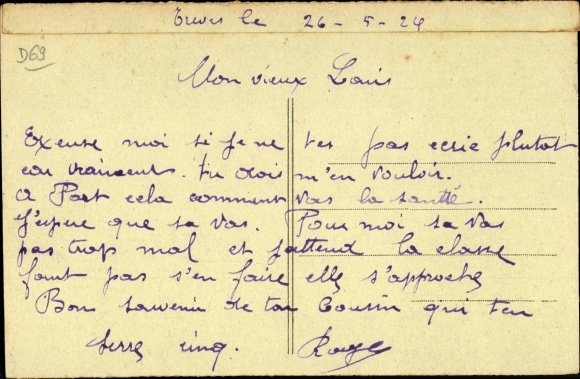 Treves le 26-5-24
D69
Mon vieux Louis
Excuse moi si je ne t'es pas ecrie plutot
car vraiment tu dois m'en vouloir.
a Part cela comment vas la santté.
J'espere que sa vas. Pour moi sa vas
pas trop mal et j'attend la classe
faut pas s'en faire elle s'approche
Bons souvenir de ton Cousin qui t'en
serre cinq. Roger